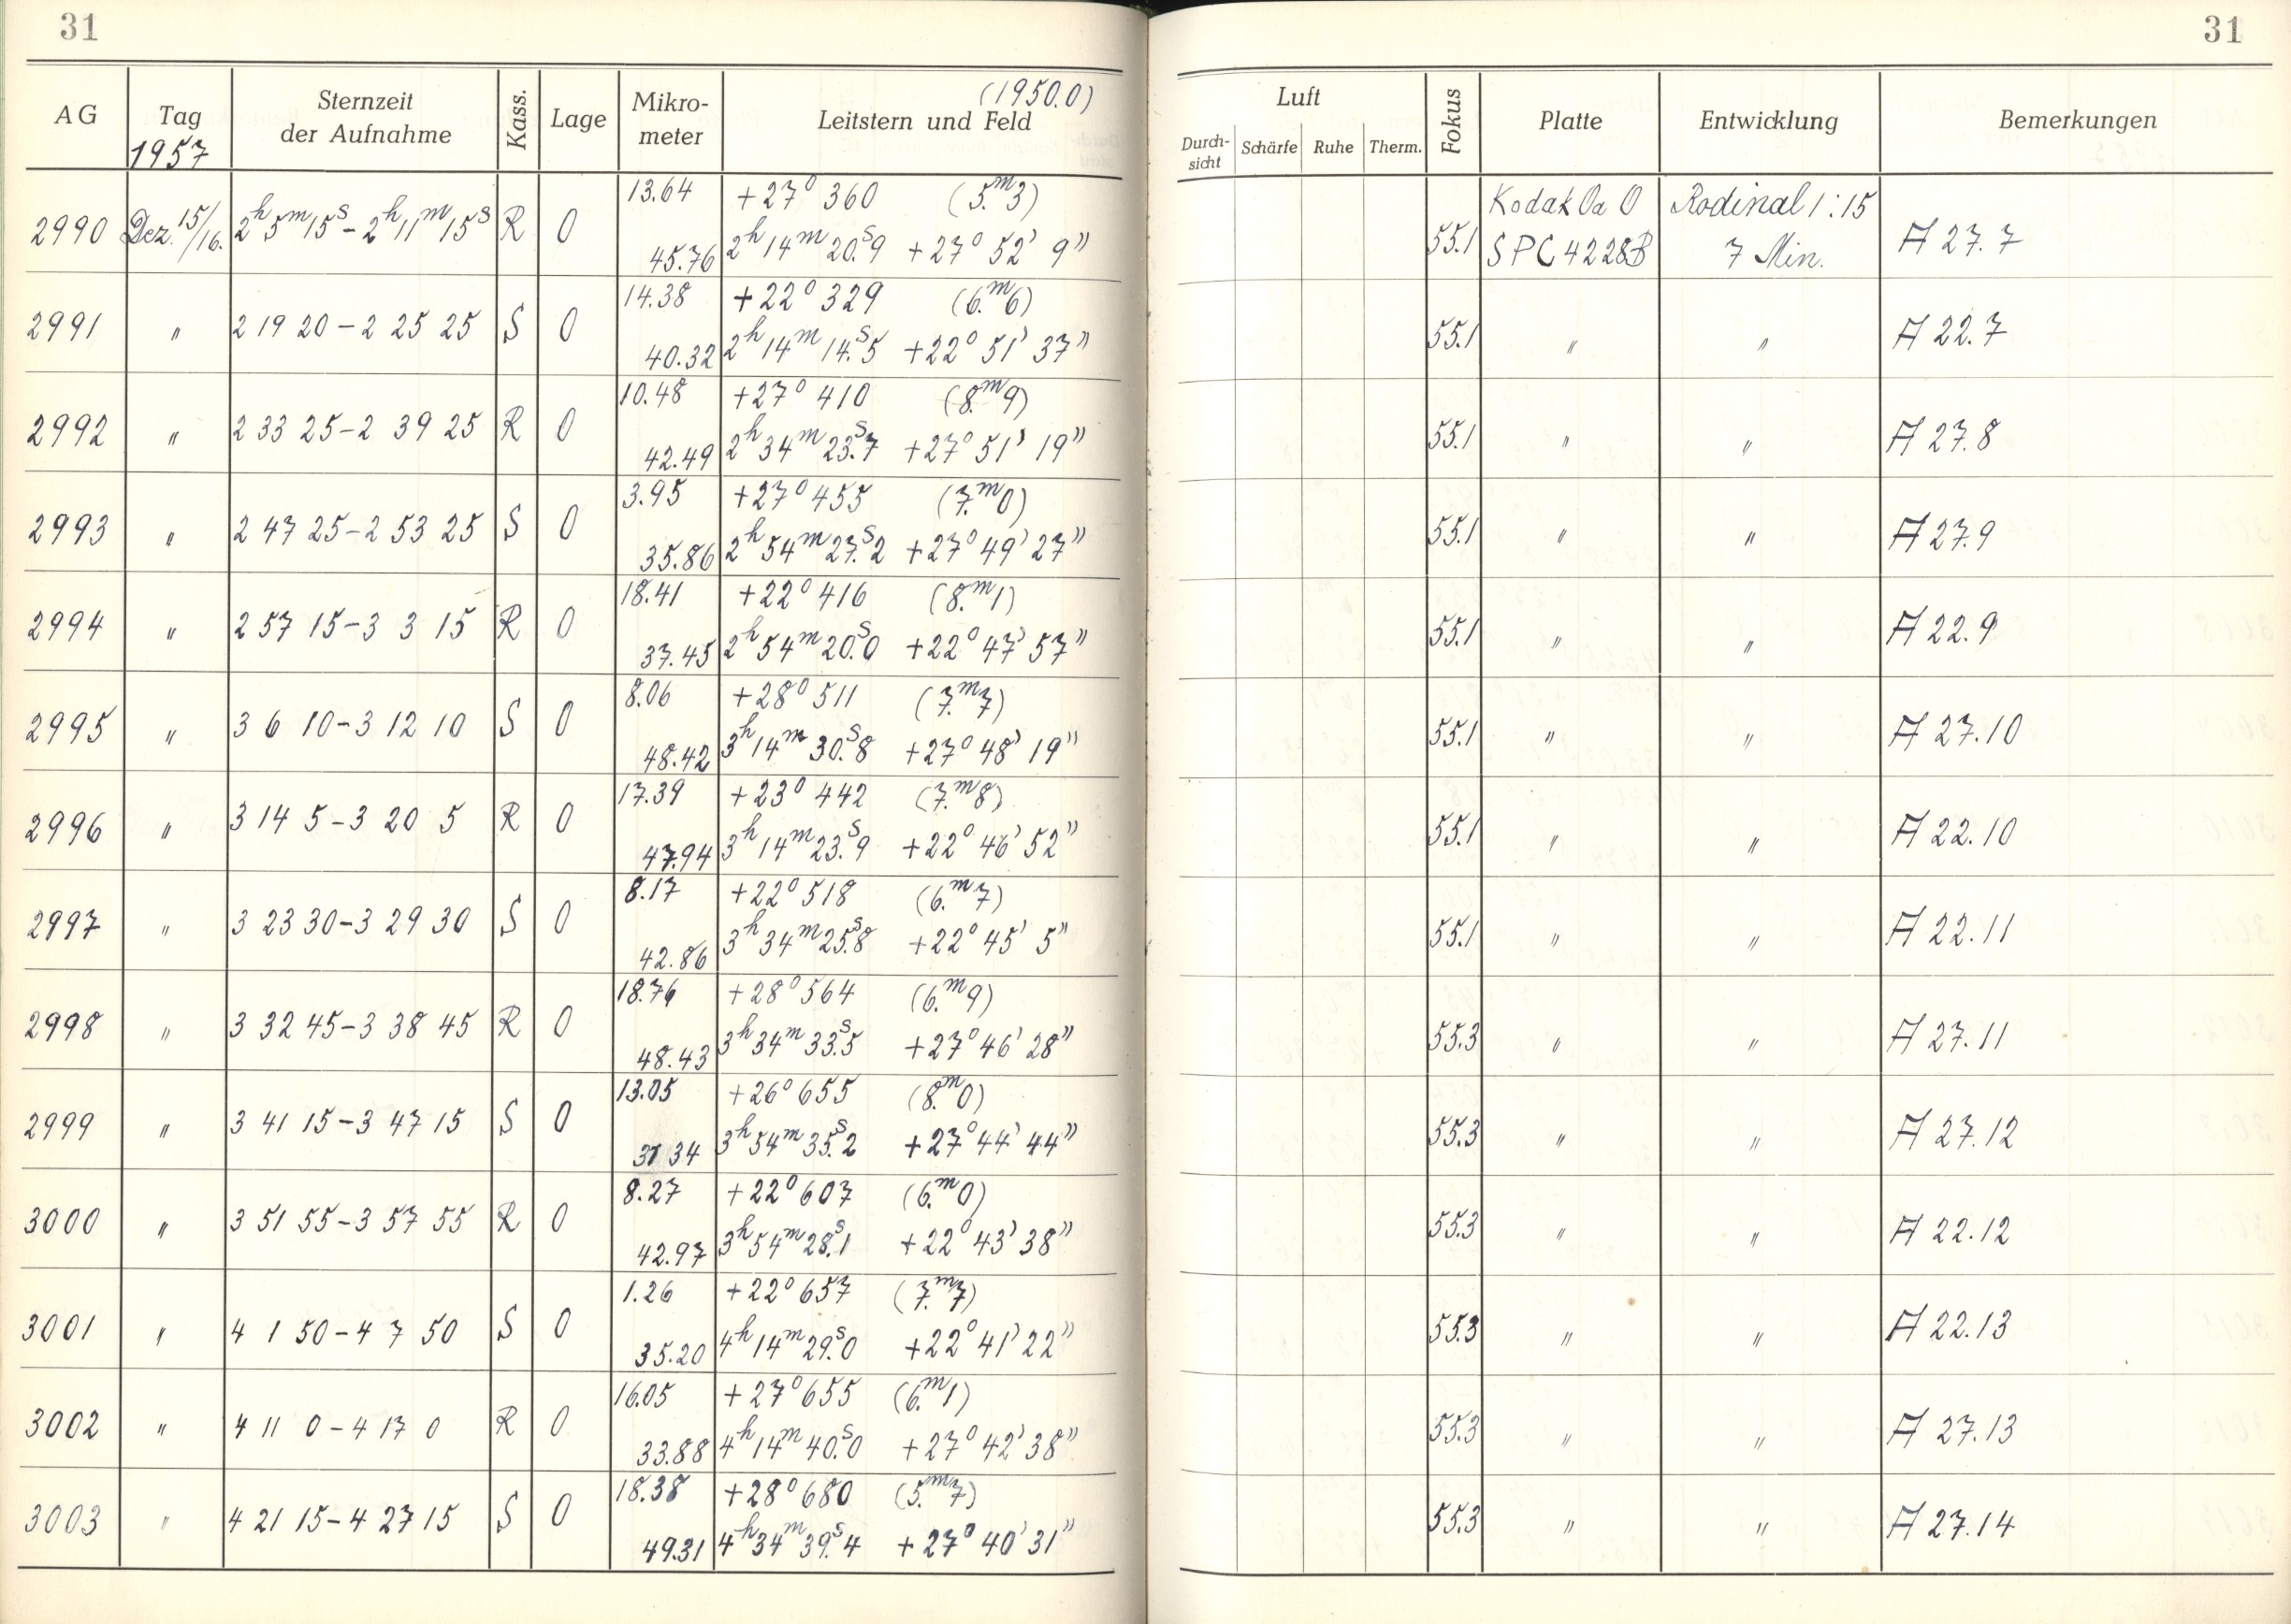 31
31
AG Tag 1957 Sternzeit der Aufnahme Kass. Lage Mikro-meter Leitstern und Feld (1950.0) Luft Durch-sicht Schärfe Ruhe Therm. Fokus Platte Entwicklung Bemerkungen
13.64 +27° 360 (5.ᵐ3) Kodak Oa O Rodinal 1:15
2990 Dez. 15/16. 2ʰ5ᵐ15ˢ - 2ʰ11ᵐ15ˢ R 0 45.76 2ʰ 14ᵐ 20.ˢ9 +27° 52' 9" 55.1 SPC 4228B 7 Min. A 27.7
14.38 +22° 329 (6.ᵐ6)
2991 " 2 19 20 - 2 25 25 S 0 40.32 2ʰ 14ᵐ 14.ˢ5 +22° 51' 37" 55.1 " " A 22.7
10.48 +27° 410 (8.ᵐ9)
2992 " 2 33 25 - 2 39 25 R 0 42.49 2ʰ 34ᵐ 23.ˢ7 +27° 51' 19" 55.1 " " A 27.8
3.95 +27° 455 (7.ᵐ0)
2993 " 2 47 25 - 2 53 25 S 0 35.86 2ʰ 54ᵐ 27.ˢ2 +27° 49' 27" 55.1 " " A 27.9
18.41 +22° 416 (8.ᵐ1)
2994 " 2 57 15 - 3 3 15 R 0 37.45 2ʰ 54ᵐ 20.ˢ0 +22° 47' 57" 55.1 " " A 22.9
8.06 +28° 511 (7.ᵐ7)
2995 " 3 6 10 - 3 12 10 S 0 48.42 3ʰ 14ᵐ 30.ˢ8 +27° 48' 19" 55.1 " " A 27.10
17.39 +23° 442 (7.ᵐ8)
2996 " 3 14 5 - 3 20 5 R 0 47.94 3ʰ 14ᵐ 23.ˢ9 +22° 46' 52" 55.1 " " A 22.10
8.17 +22° 518 (6.ᵐ7)
2997 " 3 23 30 - 3 29 30 S 0 42.86 3ʰ 34ᵐ 25.ˢ8 +22° 45' 5" 55.1 " " A 22.11
18.76 +28° 564 (6.ᵐ9)
2998 " 3 32 45 - 3 38 45 R 0 48.43 3ʰ 34ᵐ 33.ˢ5 +27° 46' 28" 55.3 " " A 27.11
13.05 +26° 655 (8.ᵐ0)
2999 " 3 41 15 - 3 47 15 S 0 34 3ʰ 54ᵐ 35.ˢ2 +27° 44' 44" 55.3 " " A 27.12
8.27 +22° 607 (6.ᵐ0)
3000 " 3 51 55 - 3 57 55 R 0 42.97 3ʰ 54ᵐ 28.ˢ1 +22° 43' 38" 55.3 " " A 22.12
1.26 +22° 657 (7.ᵐ7)
3001 " 4 1 50 - 4 7 50 S 0 35.20 4ʰ 14ᵐ 29.ˢ0 +22° 41' 22" 55.3 " " A 22.13
16.05 +27° 655 (6.ᵐ1)
3002 " 4 11 0 - 4 17 0 R 0 33.88 4ʰ 14ᵐ 40.ˢ0 +27° 42' 38" 55.3 " " A 27.13
18.38 +28° 680 (5.ᵐ7)
3003 " 4 21 15 - 4 27 15 S 0 49.31 4ʰ 34ᵐ 39.ˢ4 +27° 40' 31" 55.3 " " A 27.14